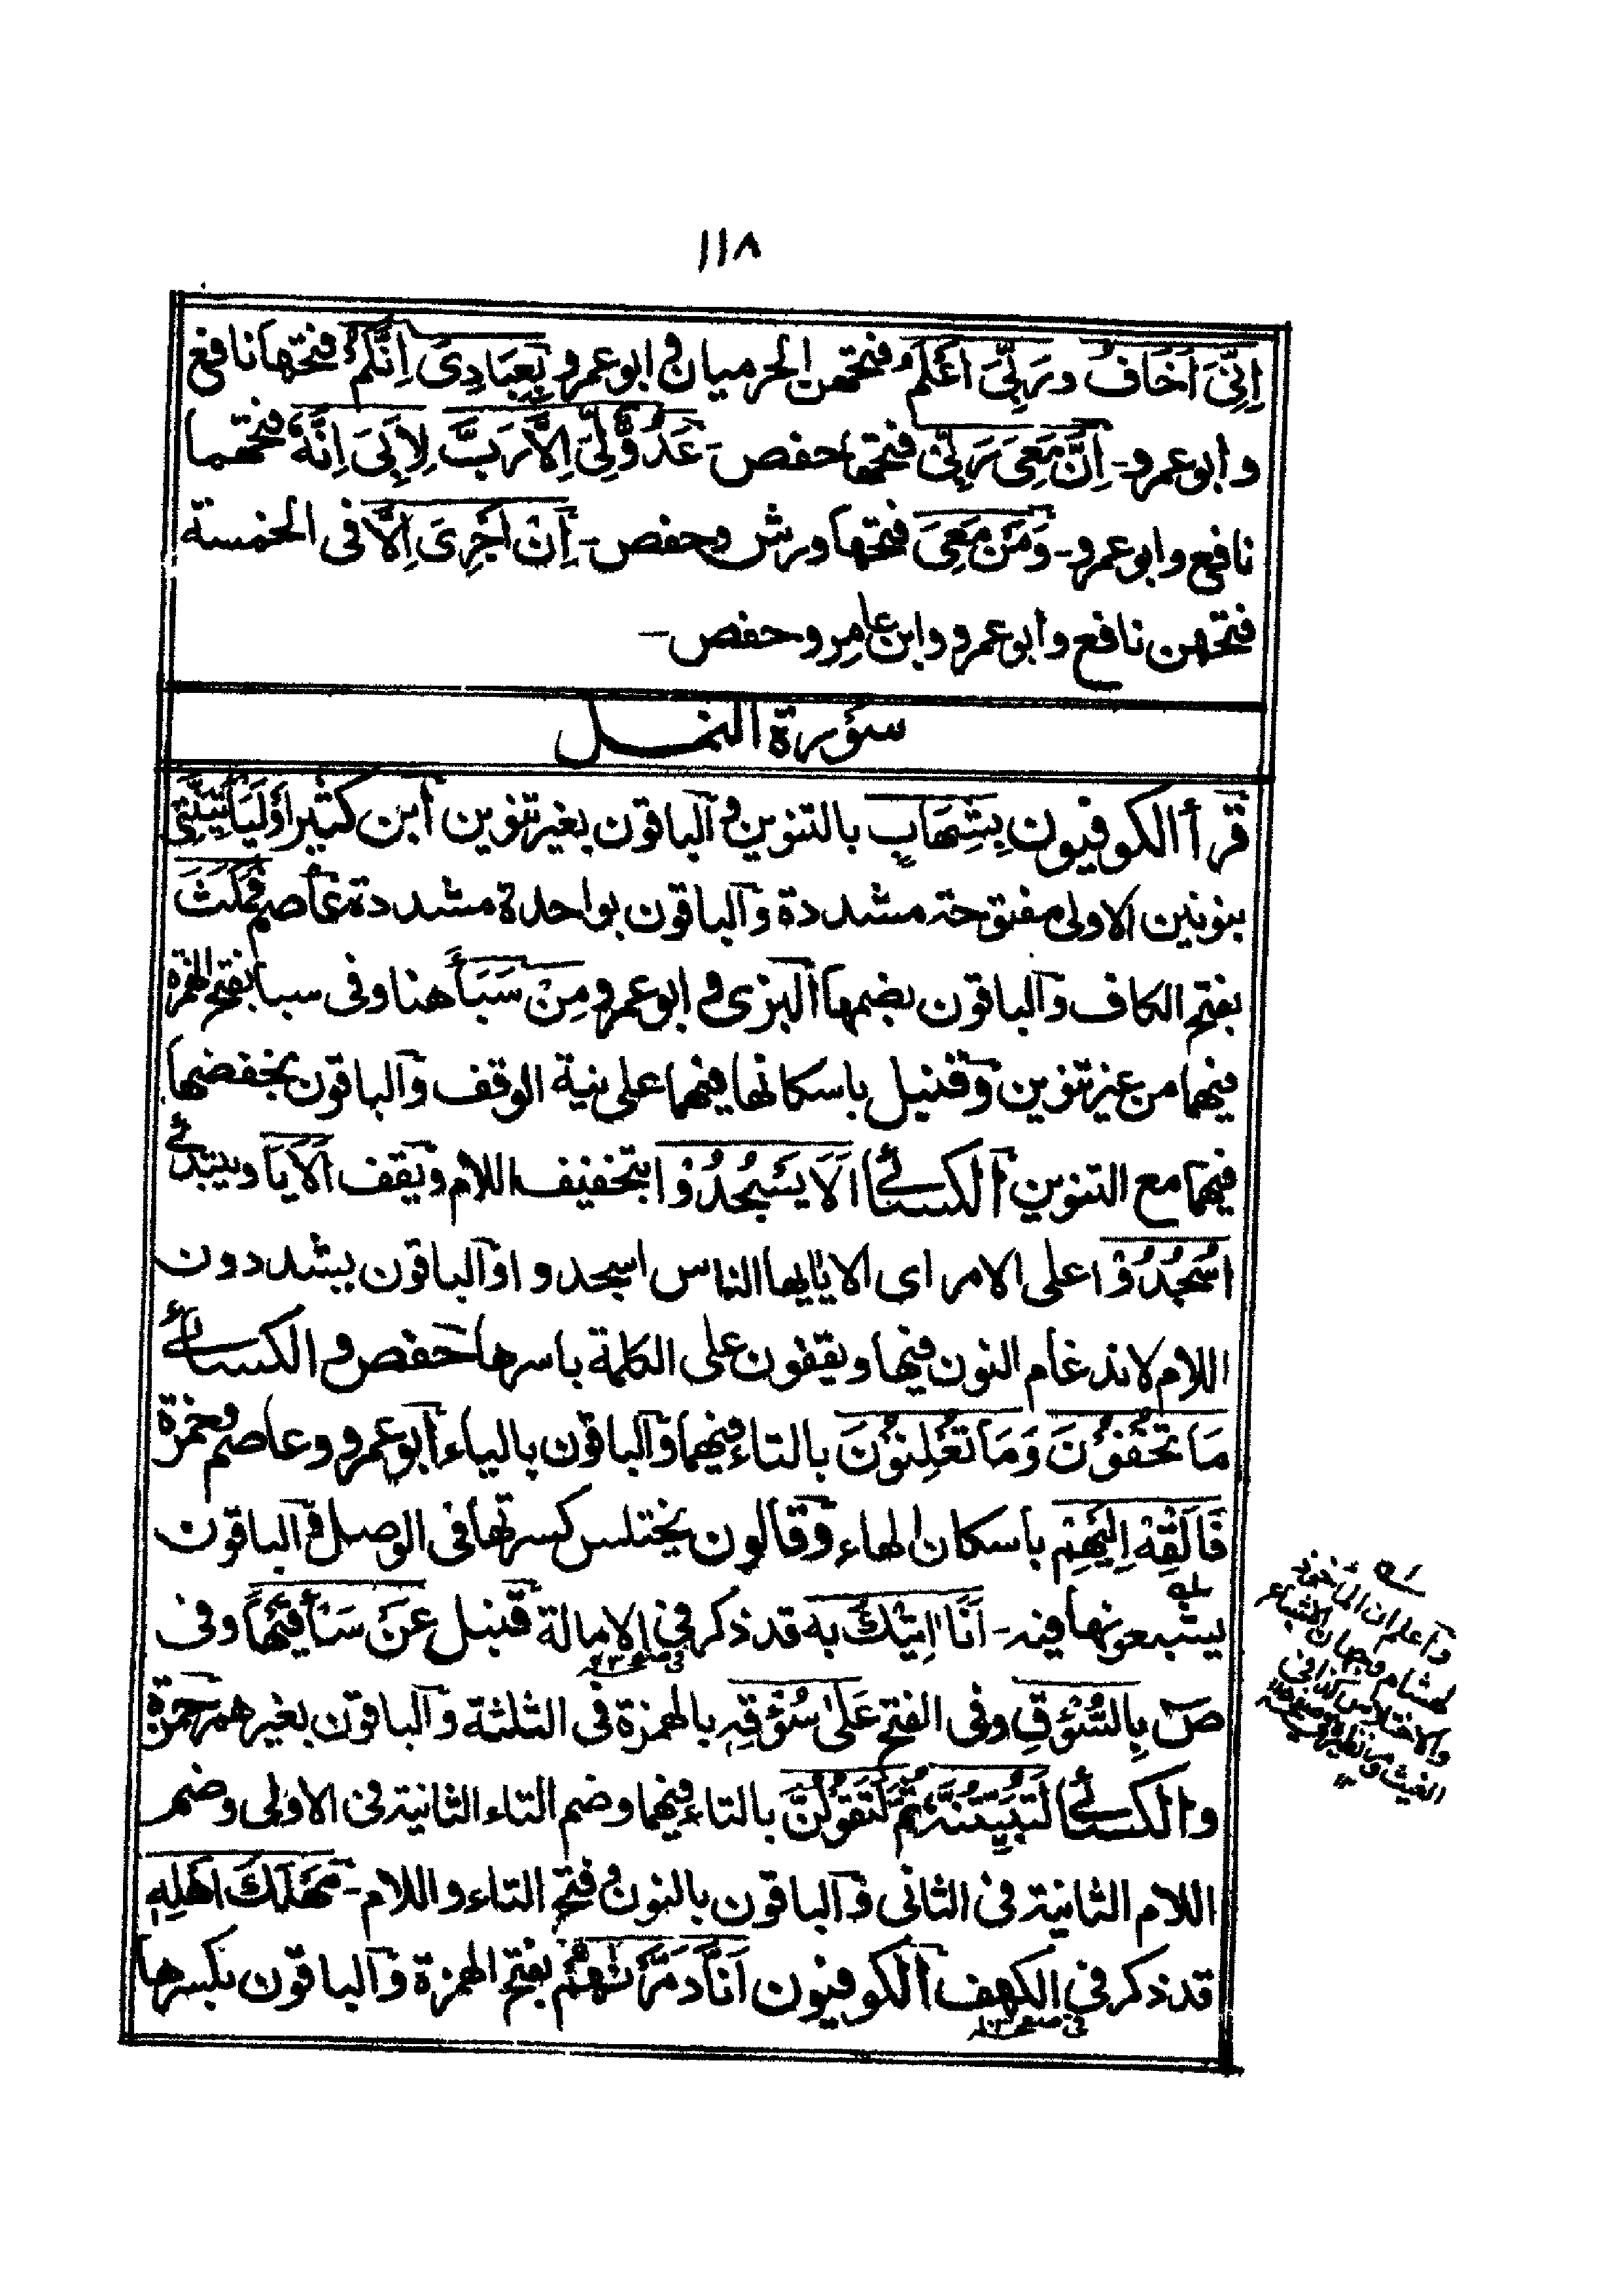 ١١٨
اِنِّیَ اَخَافُ وربِّیَ اَعْلَمُ فتحهن الحرمیان و ابو عمرو بِعِبَادِیَ اِنَّكُمْ فتحها نافع
و ابو عمرو۔ اِنَّ مَعِیَ رَبِّیْ فتحها حفص۔ عَدُوٌّ لِّیَ اِلَّا رَبَّ لِاَبِیَ اِنَّهٗ فتحهما
نافع و ابو عمرو۔ وَمَنْ مَعِیَ فتحها ورش و حفص۔ اِنْ اَجْرِیَ اِلَّا فی الخمسة
فتحهن نافع و ابو عمرو و ابن عامر و حفص۔
سورة النمل
قرأ الكوفیون بِشِهَابٍ بالتنوین و الباقون بغیر تنوین ابن كثیر اَوْ لَیَأْتِیَنَّنِیْ
بنونین الاولی مفتوحة مشددة و الباقون بواحدة مشددة عاصم فَمَكَثَ
بفتح الكاف و الباقون بضمها البزی و ابو عمرو مِنْ سَبَأَ هنا و فی سبا بفتح الهمزة
فیهما من غیر تنوین و قنبل باسكانها فیهما علی نیة الوقف و الباقون بخفضها
فیهما مع التنوین الكسائی اَلَا یَسْجُدُوْا بتخفیف اللام و یقف اَلَا یَا و یبتدئ
اُسْجُدُوْا علی الامر ای الا یایها الناس اسجدوا و الباقون یشددون
اللام لاندغام النون فیها و یقفون علی الكلمة باسرها حفص و الكسائی
مَا تُخْفُوْنَ وَمَا تُعْلِنُوْنَ بالتاء فیهما و الباقون بالیاء ابو عمرو و عاصم و حمزة
فَاَلْقِهْ اِلَیْهِمْ باسكان الهاء و قالون یختلس كسرتها فی الوصل و الباقون
یشبعونها فیه۔ اَنَا اٰتِیْكَ بِهٖ قد ذكر فی الامالة قنبل عَنْ سَأْقَیْهَا و فی
فی صفحه
صٓ بِالسُّؤْقِ و فی الفتح عَلٰی سُؤْقِهٖ بالهمزة فی الثلثة و الباقون بغیر همز حمزة
و الكسائی لَتُبَیِّتُنَّهٗ ثُمَّ لَتَقُوْلُنَّ بالتاء فیهما و ضم التاء الثانیة فی الاولی و ضم
اللام الثانیة فی الثانی و الباقون بالنون و فتح التاء و اللام۔ مَهْلَكَ اَهْلِهٖ
قد ذكر فی الكهف الكوفیون اَنَّا دَمَّرْنٰهُمْ بفتح الهمزة و الباقون بكسرها
فی صفحه
و اعلم ان الماخوذ
لهشام وجهان الاشباع
و الاختلاس كذا فی
الغیث